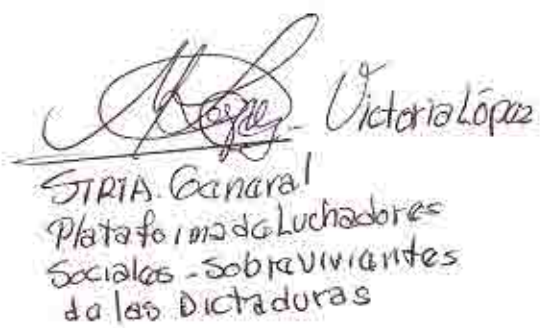 Victoria López
STRIA. General
Plataforma de Luchadores
Sociales - Sobrevivientes
de las Dictaduras